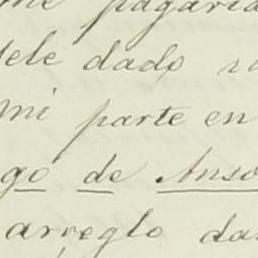 me pagaria
dele dado
mi parte en
go de Anso
arreglo da